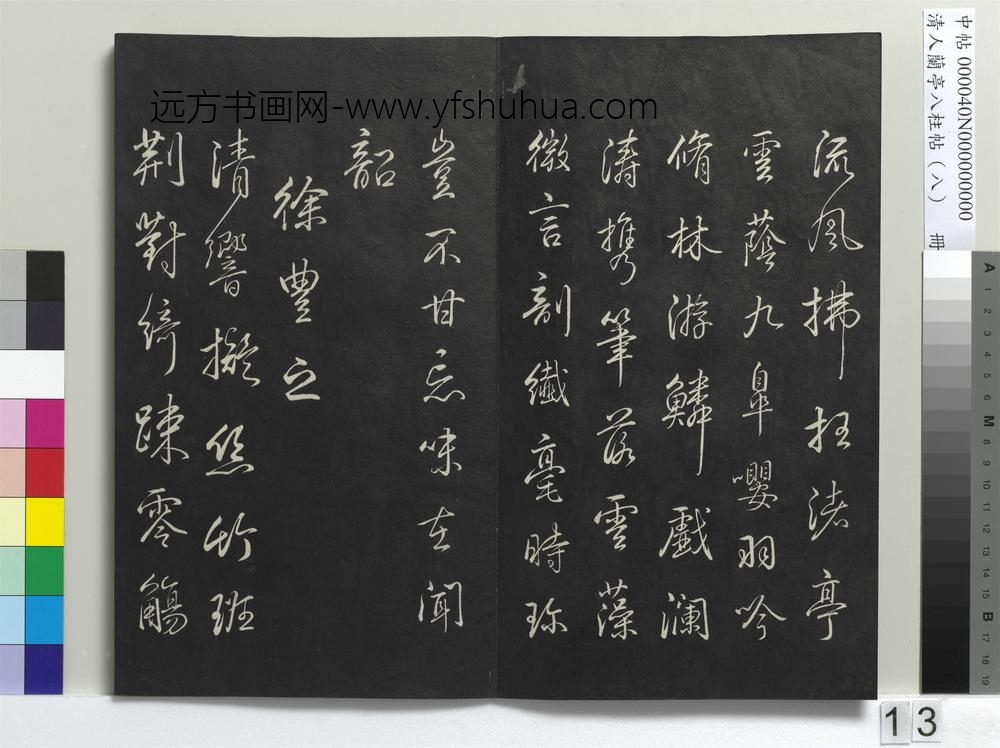 远方书画网-www.yfshuhua.com
流風拂枉渚亭
雲蔭九皐嚶羽吟
脩林游鱗戲瀾
濤攜筆落雲藻
微言剖纖毫時珎
豈不甘忘味在聞
韶
徐豐之
清響擬絲竹班
荆對綺疎零觴
中帖 000040N000000000
清人蘭亭八柱帖（八） 冊
A 1 2 3 4 5 6 M 8 9 10 11 12 13 14 15 B 17 18 19
13